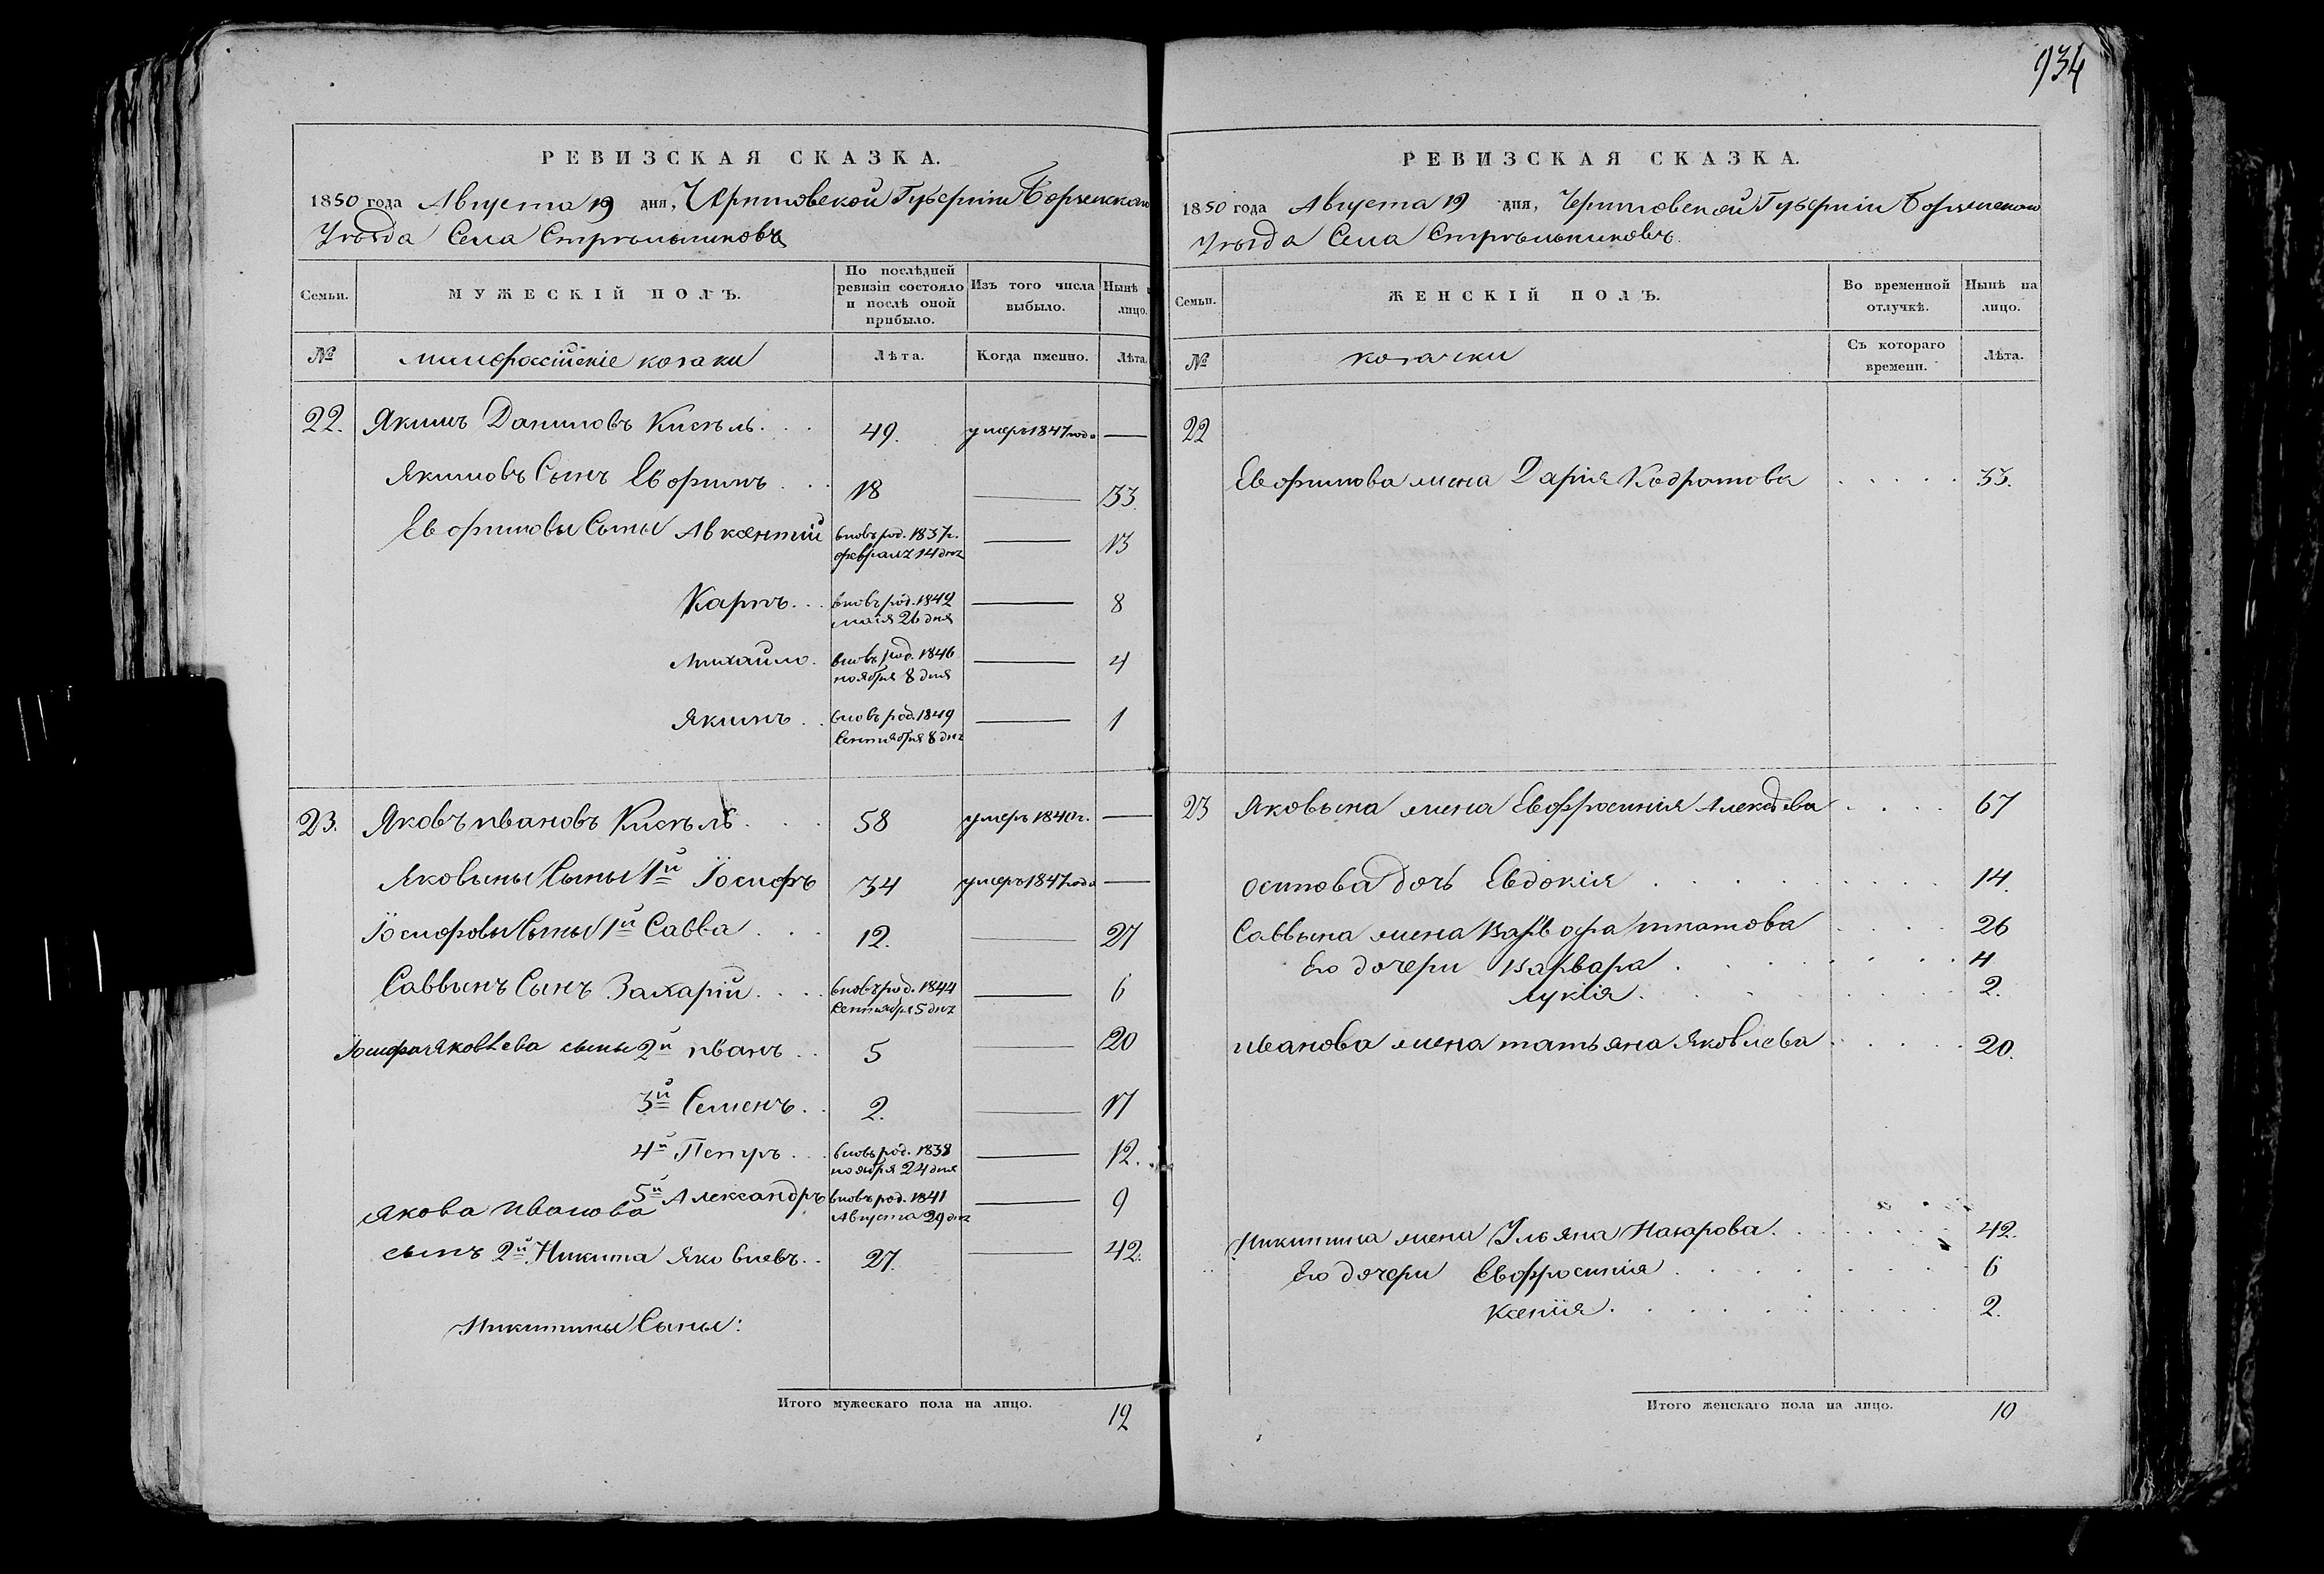 934
РЕВИЗСКАЯ СКАЗКА.
1850 года Августа 19 дня, Черниговской Губернiи Борзенскаго
Уѣзда Села Стрѣльниковъ
Семьи. МУЖЕСКIЙ ПОЛЪ. По послѣдней ревизiи состояло и послѣ оной прибыло. Изъ того числа выбыло. Нынѣ лицо.
№ малороссiйскiе козаки Лѣта. Когда именно. Лѣта.
22. Якимъ Даниловъ Кисѣль . . . 49. умеръ 1847 года —
Якимовъ Сынъ Евфимъ . . . 18 — 33.
Евфимовы Сыны Авксентiй вновь род. 1837 г. февраля 14 дня — 13
Карпъ . . . вновь род. 1842 маiя 26 дня — 8
Михайло . вновь род. 1846 ноября 8 дня — 4
Якимъ . . вновь род. 1849 Сентября 8 дня — 1
23. Яковъ ивановъ Кисѣль . . . 58 умеръ 1840 г. —
Яковины Сыны 1й Iосифъ 34 умеръ 1847 года —
Iосифовы Сыны 1й Савва . . . 12. — 27
Саввинъ Сынъ Захарiй . . . вновь род. 1844 Сентября 5 дня — 6
Iосифа Яковлева сыны 2й иванъ . . 5 — 20
3й Семенъ . . 2. — 17
4й Петръ . . . вновь род. 1838 ноября 24 дня — 12.
5й Александръ вновь род. 1841 Августа 29 дня — 9
Якова иванова
сынъ 2й Никита Яковлевъ . . 27. — 42.
Никитины Сыны:
Итого мужескаго пола на лицо. 12
РЕВИЗСКАЯ СКАЗКА.
1850 года Августа 19 дня, Черниговской Губернiи Борзенскаго
Уѣзда Села Стрѣльниковъ.
Семьи. ЖЕНСКIЙ ПОЛЪ. Во временной отлучкѣ. Нынѣ на лицо.
№ козачки Съ котораго времени. Лѣта.
22
Евфимова жена Дарiя Кодратова . . . . . 33.
23 Яковына жена Евфросинiя Алексѣева . . . . 67
осипова дочь Евдокiя . . . . . . . . 14.
Саввына жена Варвара игнатова . . . . 26
Его дочери Варвара . . . . . . . . 4
лукiя . . . . . . . . 2.
иванова жена татьяна Яковлева . . . . . 20.
Никитина жена Ульяна Назарова . . . . . . 42.
Его дочери Евфросинiя . . . . . . . 6
Ксенiя . . . . . . . . 2.
Итого женскаго пола на лицо. 10